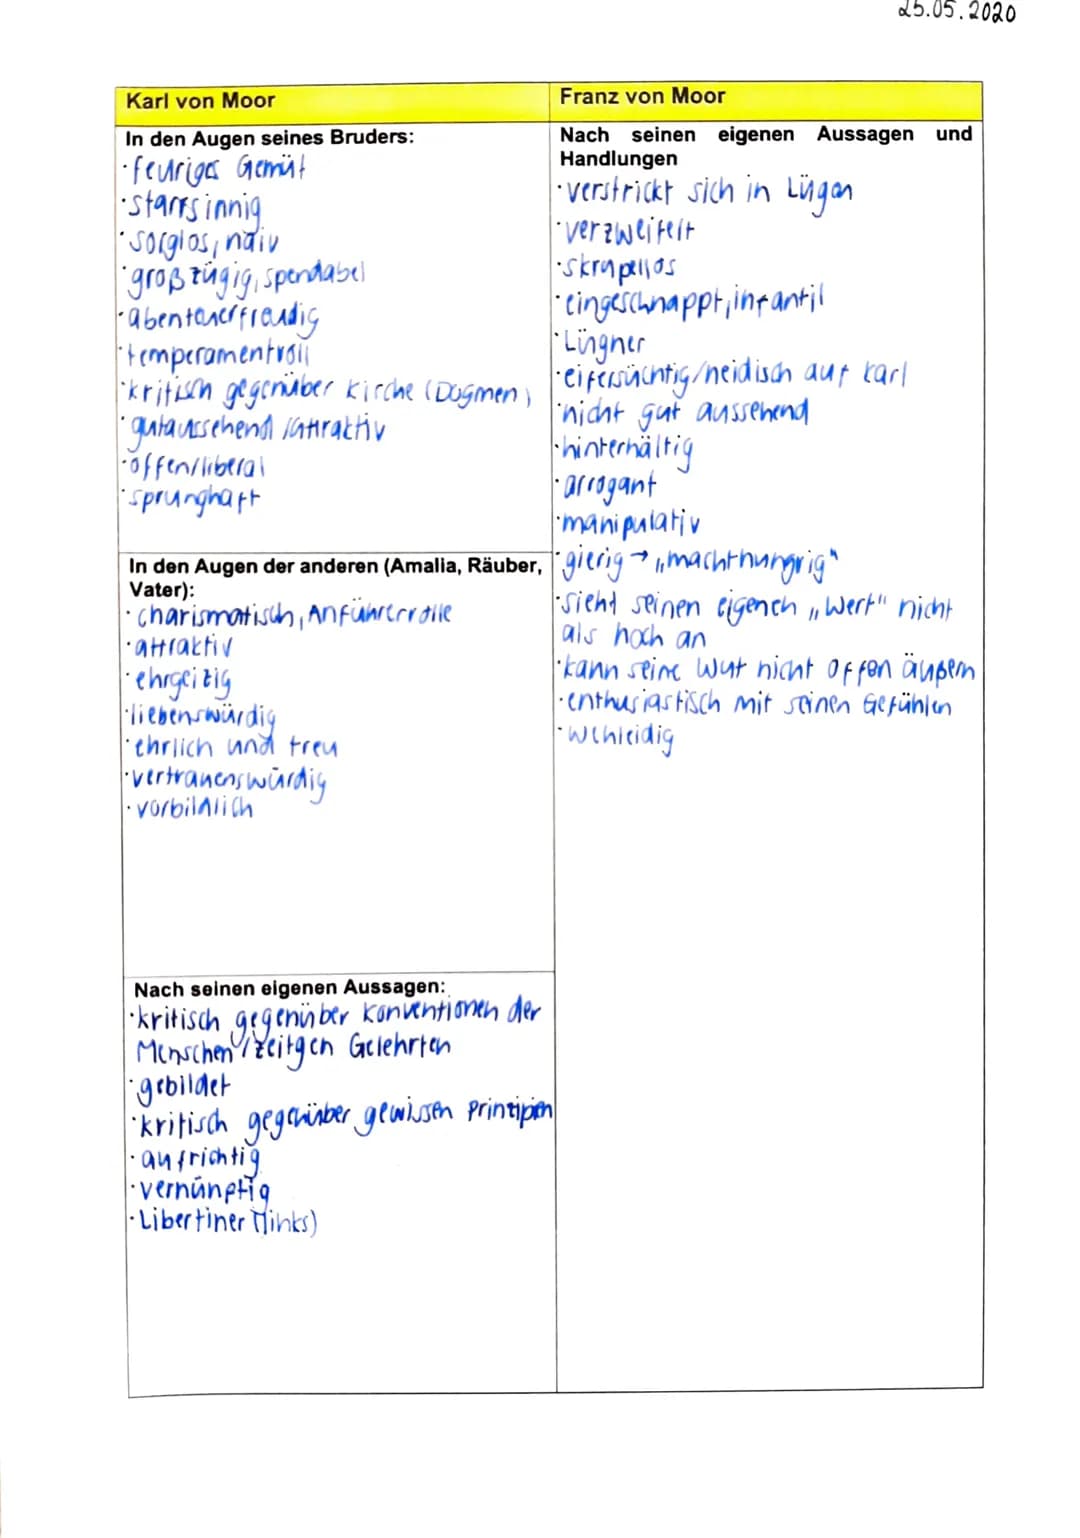 25.05.2020
Karl von Moor
In den Augen seines Bruders:
·feuriges Gemüt
·starrsinnig
·sorglos, naiv
·großzügig, spendabel
·abenteuerfreudig
·temperamentvoll
·kritisch gegenüber Kirche (Dogmen)
·gutaussehend/attraktiv
·offen/liberal
·sprunghaft
In den Augen der anderen (Amalia, Räuber,
Vater):
·charismatisch, Anführerrolle
·attraktiv
·ehrgeizig
·liebenswürdig
·ehrlich und treu
·vertrauenswürdig
·vorbildlich
Nach seinen eigenen Aussagen:
·kritisch gegenüber Konventionen der
Menschen/zeitgen Gelehrten
·gebildet
·kritisch gegenüber gewissen Prinzipien
·aufrichtig
·vernünftig
·Libertiner
Franz von Moor
Nach seinen eigenen Aussagen und
Handlungen
·verstrickt sich in Lügen
·verzweifelt
·skrupellos
·eingeschnappt, infantil
·Lüngner
·eifersüchtig/neidisch auf Karl
·nicht gut aussehend
·hinterhältig
·arrogant
·manipulativ
·gierig → „machthungrig"
·sieht seinen eigenen „Wert" nicht
als hoch an
·kann seine Wut nicht offen äußern
·enthusiastisch mit seinen Gefühlen
·wehleidig